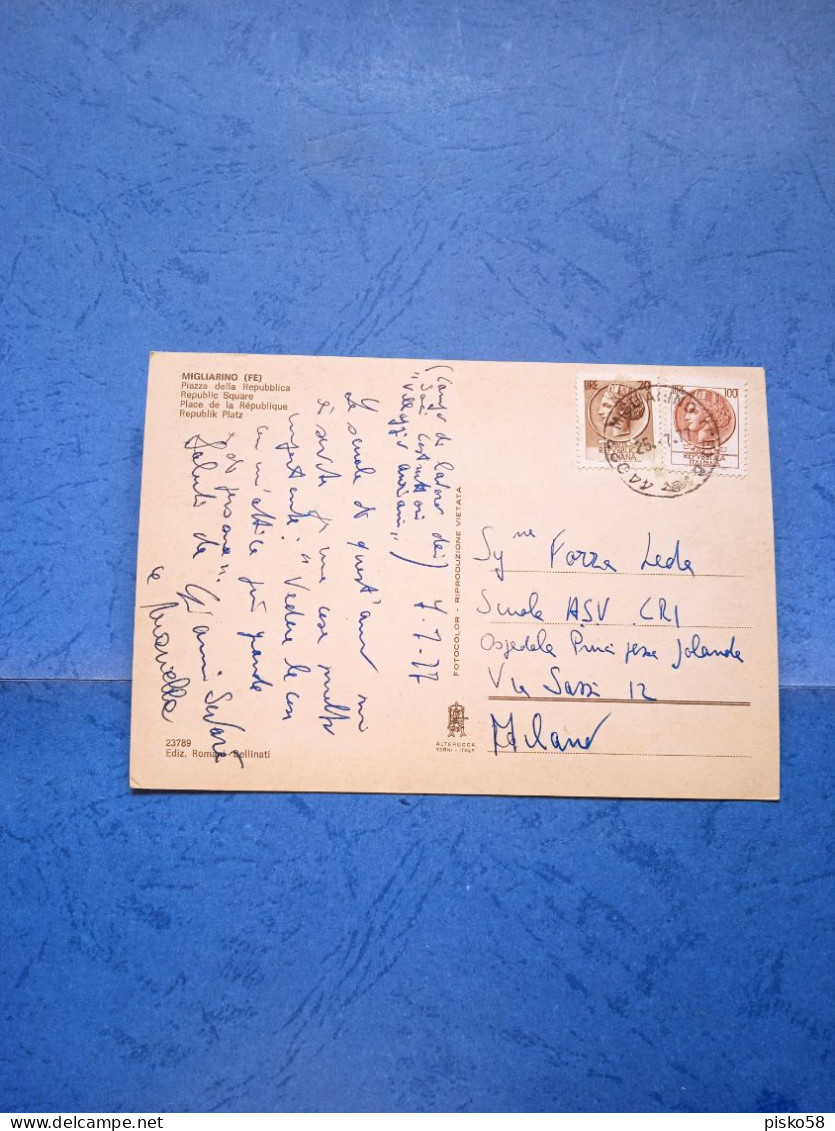 MIGLIARINO (FE)
Piazza della Repubblica
Republic Square
Place de la République
Republik Platz
(Campo di lavoro dei
"Villaggio
7.7.77
La scuola di quest'anno mi
è servita una cosa molto
importante: "Vedere le cose
un'ottica più grande
Saluti da Gianni
e
23789
Ediz. Romano Bellinati
FOTOCOLOR - RIPRODUZIONE VIETATA
ALTEROCCA
TERNI - ITALY
LIRE 20
REPUBBLICA
ITALIANA
LIRE 100
REPUBBLICA
ITALIANA
MIGLIARINO
Sig.na Forza Leda
Scuola ASV CRI
Ospedale Principessa Jolanda
Via Sassi 12
Milano
pisko58